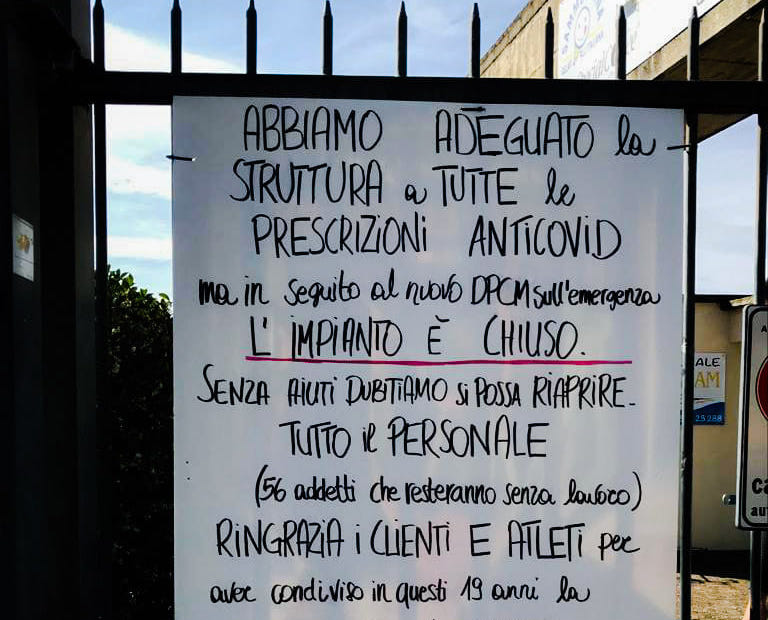 ABBIAMO ADEGUATO la
STRUTTURA a TUTTE le
PRESCRIZIONI ANTICOVID
ma in seguito al nuovo DPCM sull'emergenza
L' IMPIANTO È CHIUSO.
SENZA AIUTI DUBITIAMO si POSSA RIAPRIRE.
TUTTO il PERSONALE
(56 addetti che resteranno senza lavoro)
RINGRAZIA i CLIENTI E ATLETI per
aver condiviso in questi 19 anni la
ALE
AM
25288